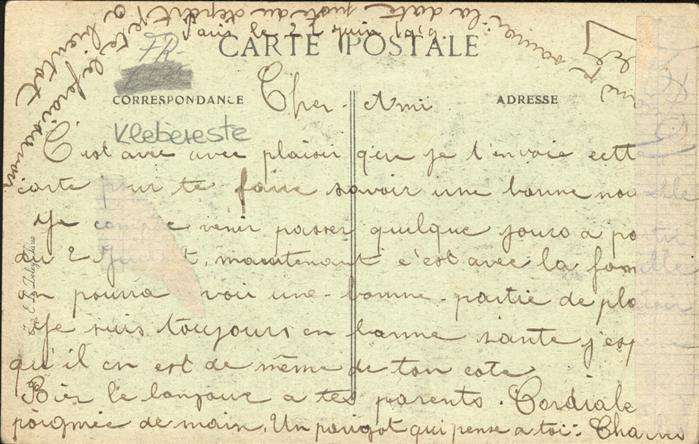 Paris le 27 juin 1919.
CARTE POSTALE
CORRESPONDANCE
ADRESSE
Cher Ami
Klebereste
C'est avec avec plaisir que je t'envoie cett
carte pour te faire savoir une bonne nou
Je compte venir passer quelque jours a pa
du 2 Juillet. maintenant c'est avec la fam
on pourra voir une bonne partie de pl
Je suis toujours en bonne sante j'esp
qu'il en est de même de ton cote
Bien le bonjour a tes parents. Cordiale
poignée de main. Un parigot qui pense a toi. Charles
savoir la date juste au départ
je te le ferais
a bientot